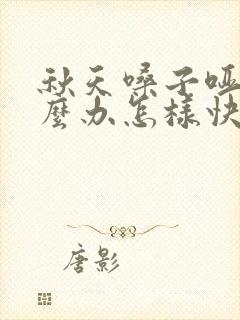 秋天嗓子哑
麼办怎样快
唐影